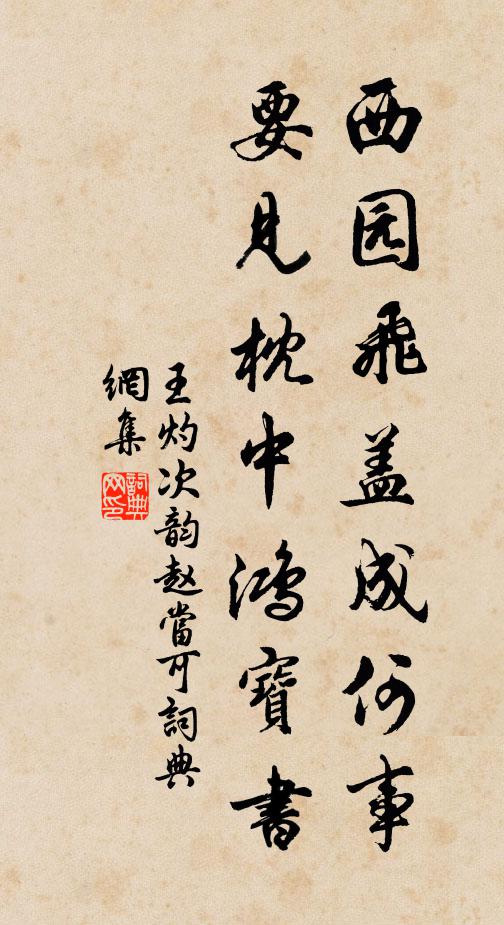 西园飛盖成何事
要見枕中鴻寶書
王灼次韵赵當可詞典
網集
詞典网印